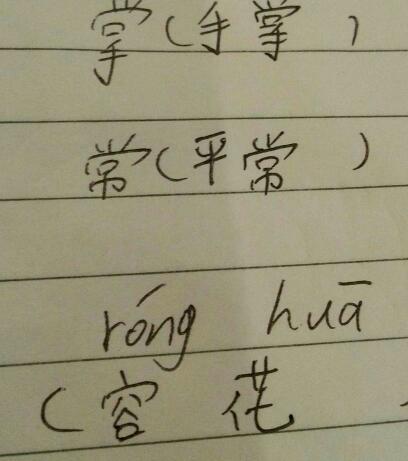 掌(手掌)
常(平常)
róng huā
(容花